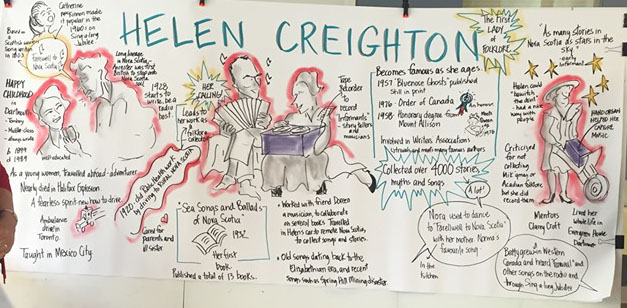 HELEN CREIGHTON
The First
LADY of
FOLKLORE
"As many stories in
Nova Scotia as stars in the
sky"
Catherine
made it popular in the
1960's on
Sing a long
Jubilee
Based on a
Scottish
Song
in 1803
"Farewell to
Nova Scotia"
HAPPY
CHILDHOOD
in
Dartmouth
- Middle class
- always wrote
B. 1899
d 1989
Well educated
Long lineage
in Nova Scotia -
Ancestor was first
British to step onto
soil
1928
Starts to
write, be a
radio
host.
HER
CALLING!
Leads to
Folklore
Tape
Recorder
to
record
"Informants"
- story tellers
and musicians
Becomes famous as she ages
1957 "Bluenose Ghosts" published
Still in print
1976 - Order of Canada
Honorary degree from
Mount Allison
Meets
Queen
Involved in Writers Associations
Collected over 4000 stories,
myths and songs
A lot!
Helen could
"bewitch
the devil"
- had a nice
way with people
HAND ORGAN
HELPED HER
CAPTURE
MUSIC
Criticized for
not collecting
Mi'kmaq or
Acadian folklore
but she did
record them
As a young woman, Travelled abroad - adventurer
Nearly died in Halifax Explosion
A fearless spirit - new how to drive
Ambulance
driver in
Toronto.
Taught in Mexico City.
1920 - did Public Health work
by driving to Rural Nova Scotia
Cared for
parents and
ill sister
"Sea Songs and Ballads
of Nova Scotia"
1932
Her first
book
Published a total of 13 books.
• Worked with friend Doreen
a musician, to collaborate
on several books Travelled
in Helen's car to remote Nova Scotia
to collect songs and stories.
• Old songs dating back to the
Elizabethan era, and recent
Songs such as Spring Hill Mining disaster
Nora used to dance
to "Farewell to Nova Scotia"
with her mother Norma's
favourite song
In the
kitchen
Betty grew in Western
Canada and heard "Farewell" and
Other songs on the radio and
through Sing a long Jubilee
Mentors
Clary Croft
Lived her
whole life in
Evergreen House
Dartmouth